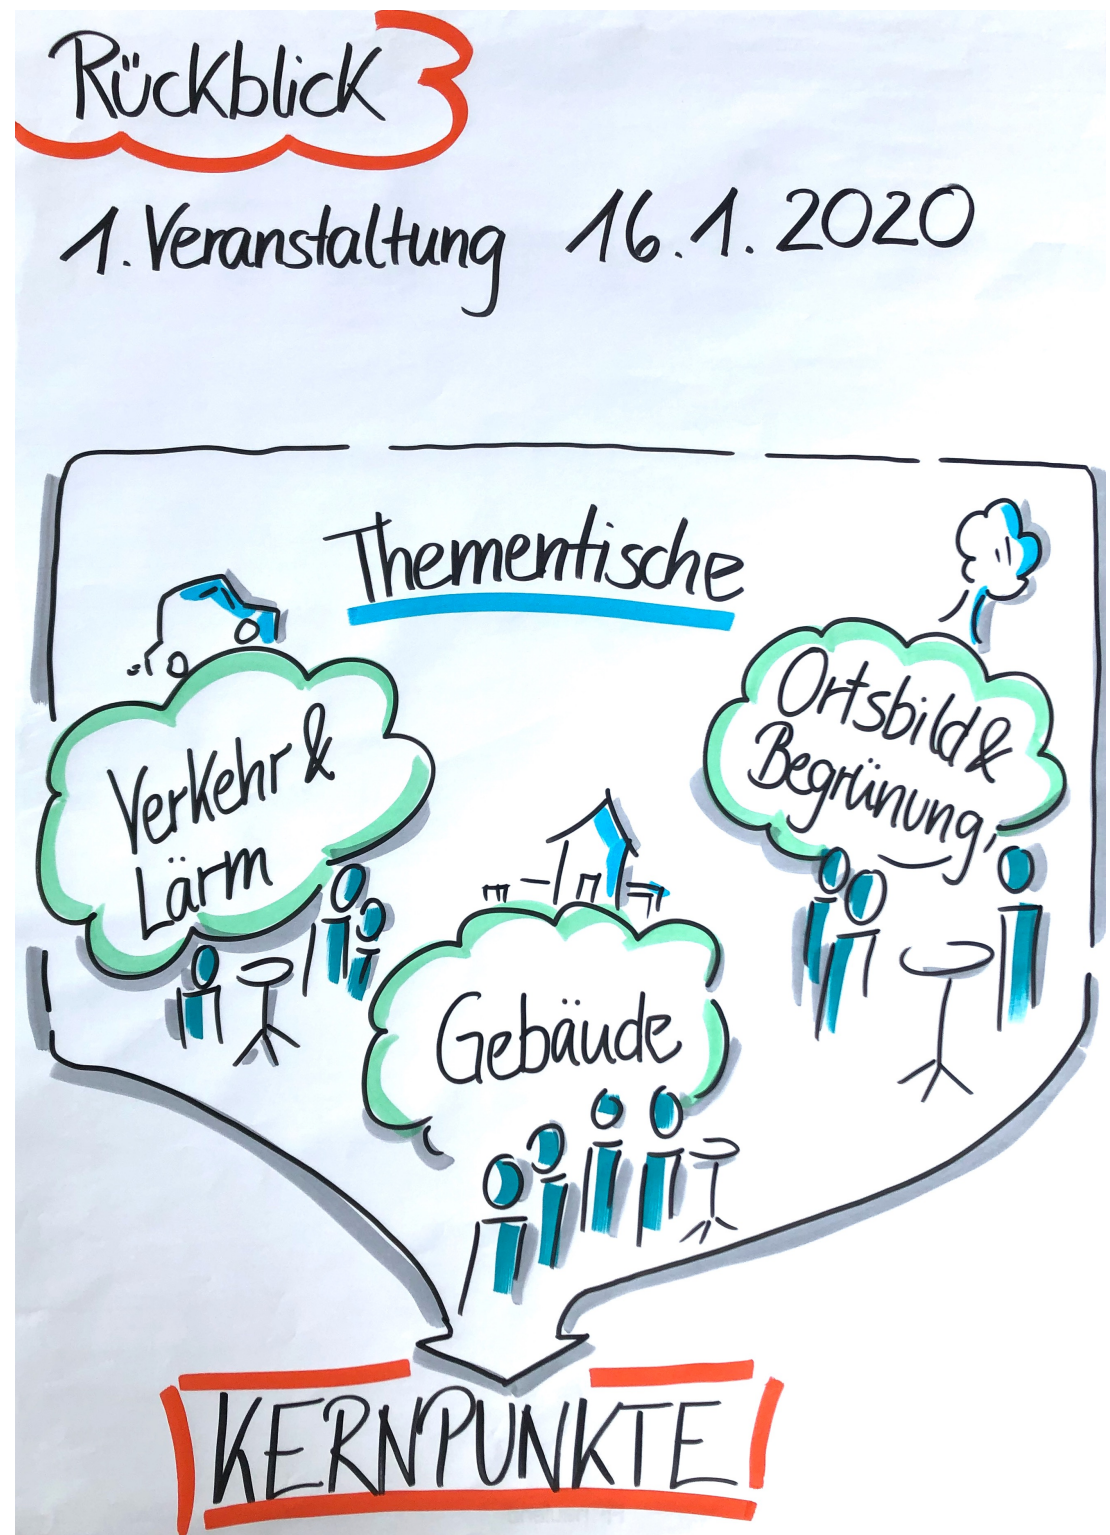 Rückblick
1. Veranstaltung 16.1.2020
Thementische
Verkehr &
Lärm
Ortsbild &
Begrünung
Gebäude
KERNPUNKTE